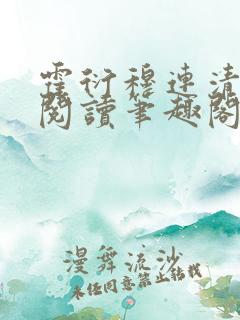 霍衍穆連清
閱讀笔趣閣
漫舞流沙
未经同意禁止转载